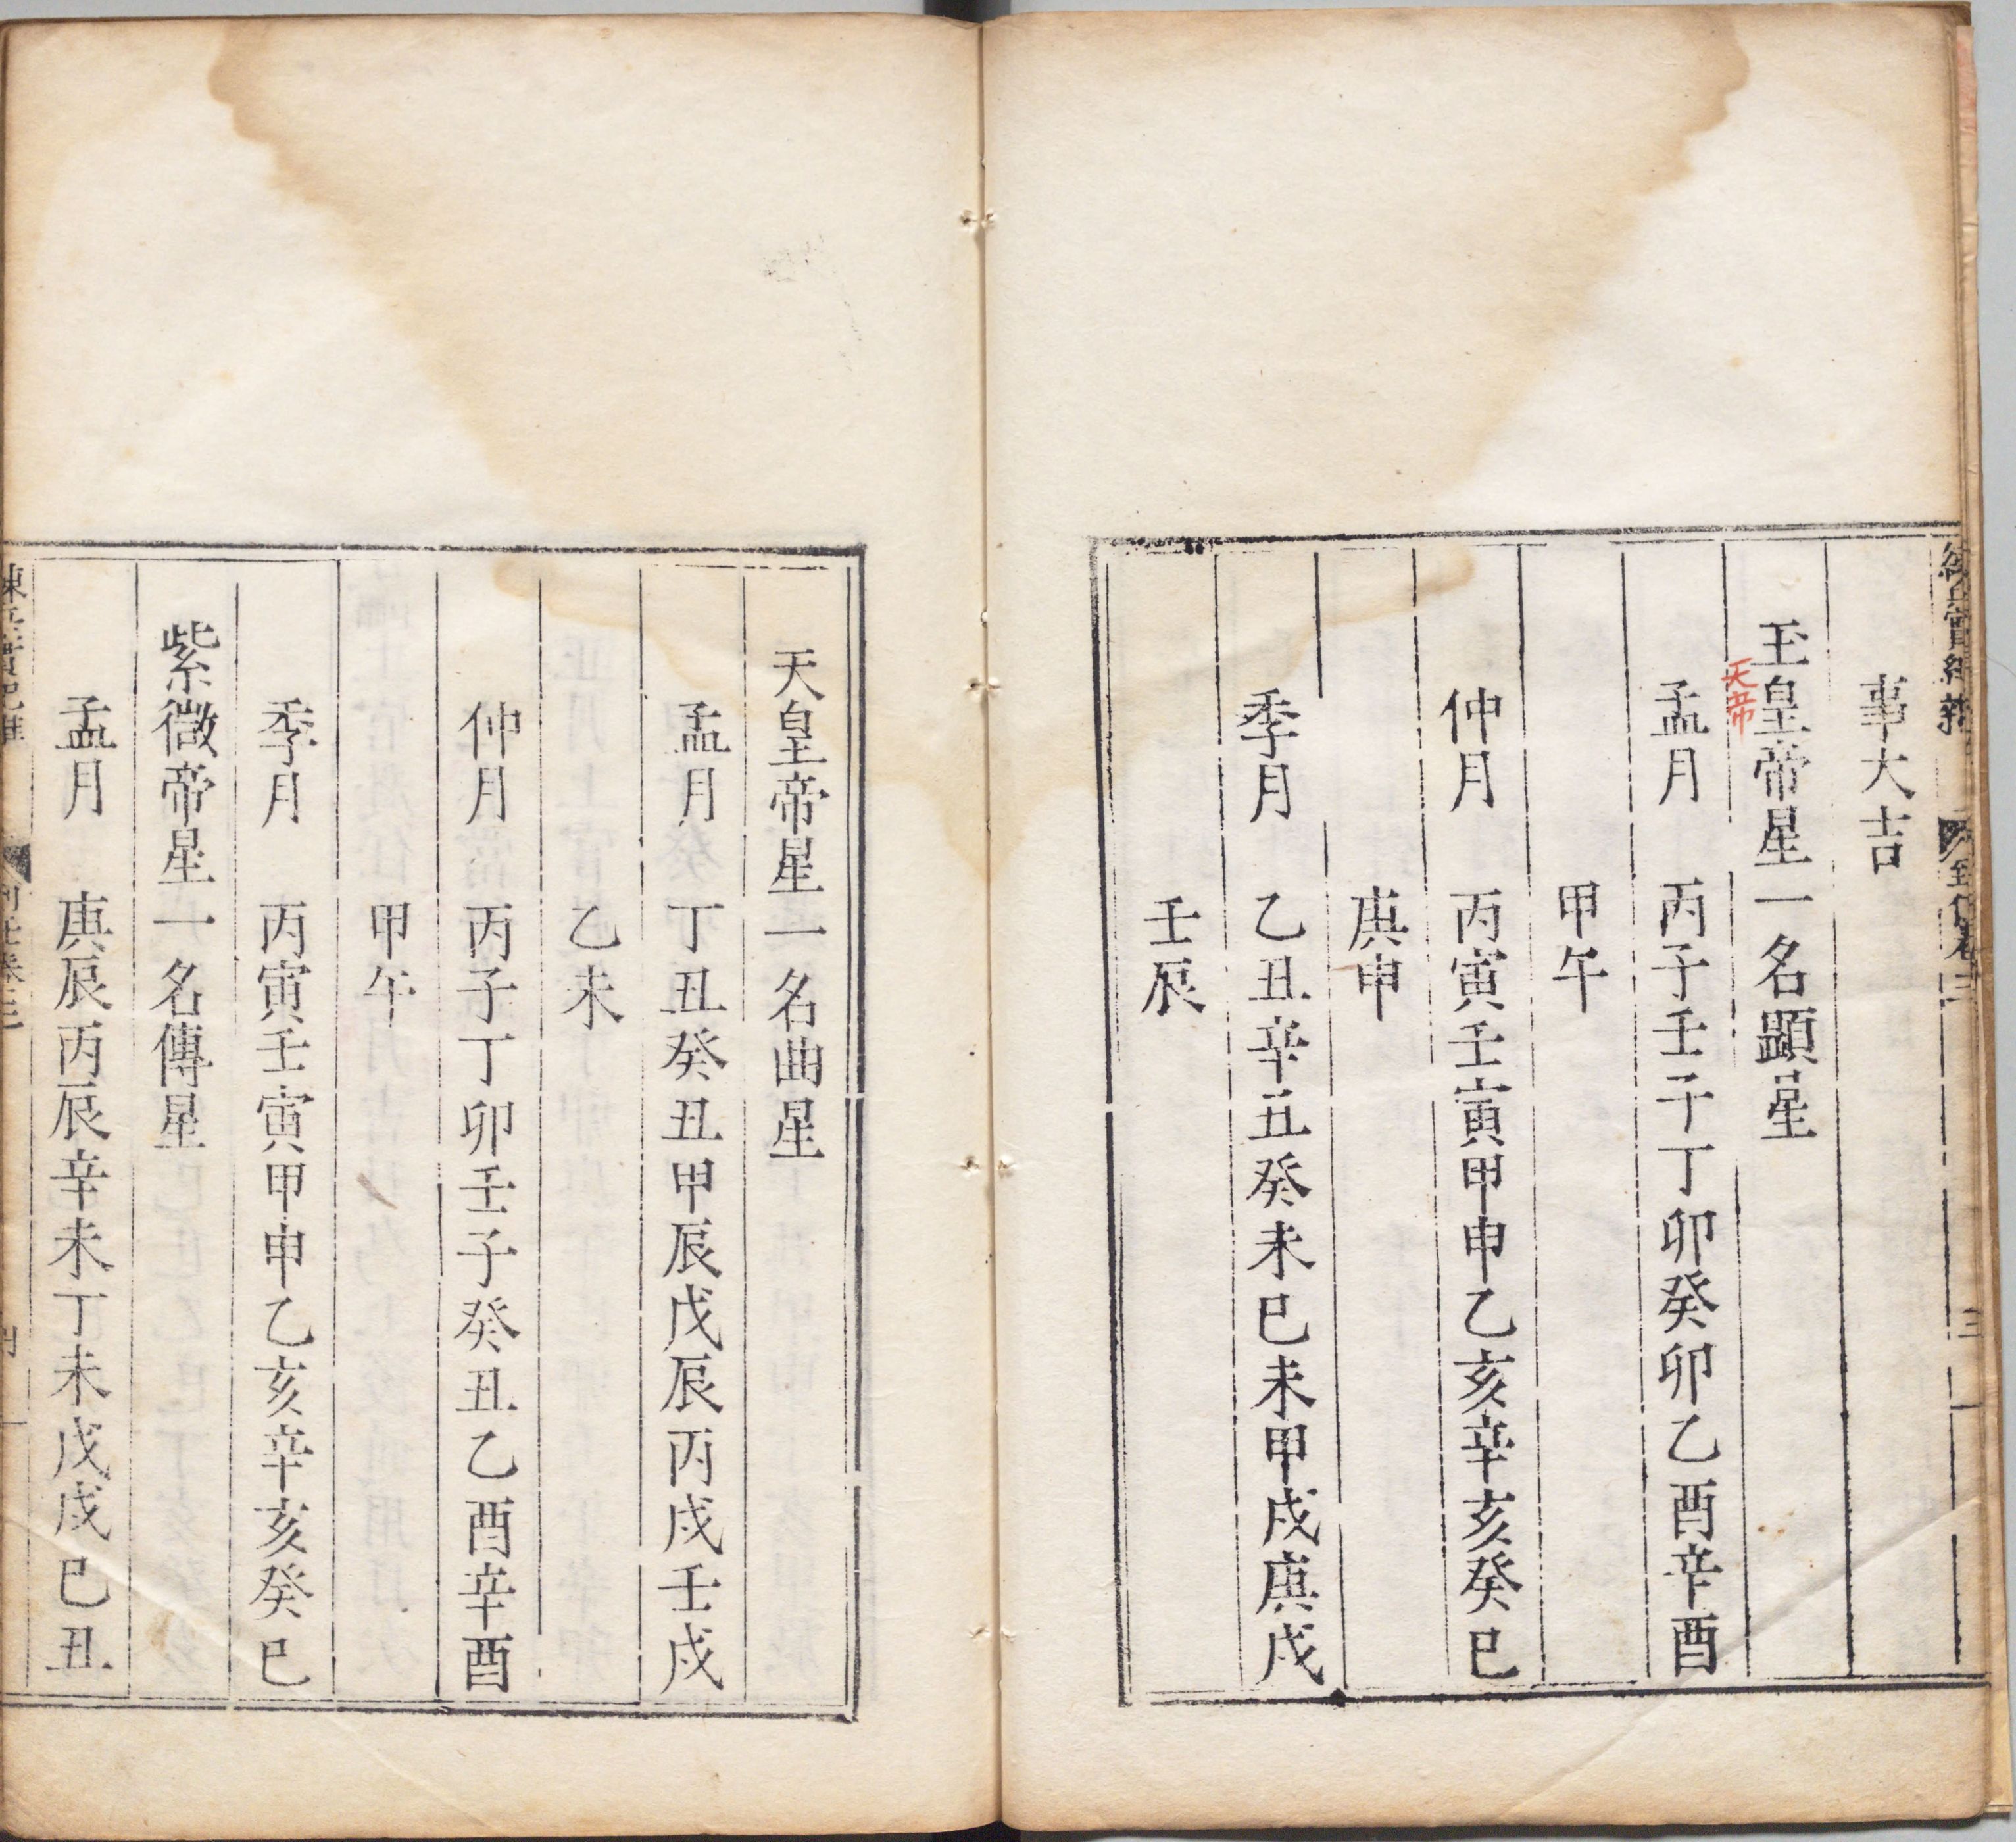 事大吉
玉皇帝星一名顕星
天帝
孟月 丙子壬子丁卯癸卯乙酉辛酉
甲午
仲月 丙寅壬寅甲申乙亥辛亥癸巳
庚申
季月 乙丑辛丑癸未己未甲戌庚戌
壬辰
天皇帝星一名曲星
孟月 丁丑癸丑甲辰戊辰丙戌壬戌
乙未
仲月 丙子丁卯壬子癸丑乙酉辛酉
甲午
季月 丙寅壬寅甲申乙亥辛亥癸巳
紫微帝星一名傳星
孟月 庚辰丙辰辛未丁未戊戌己丑